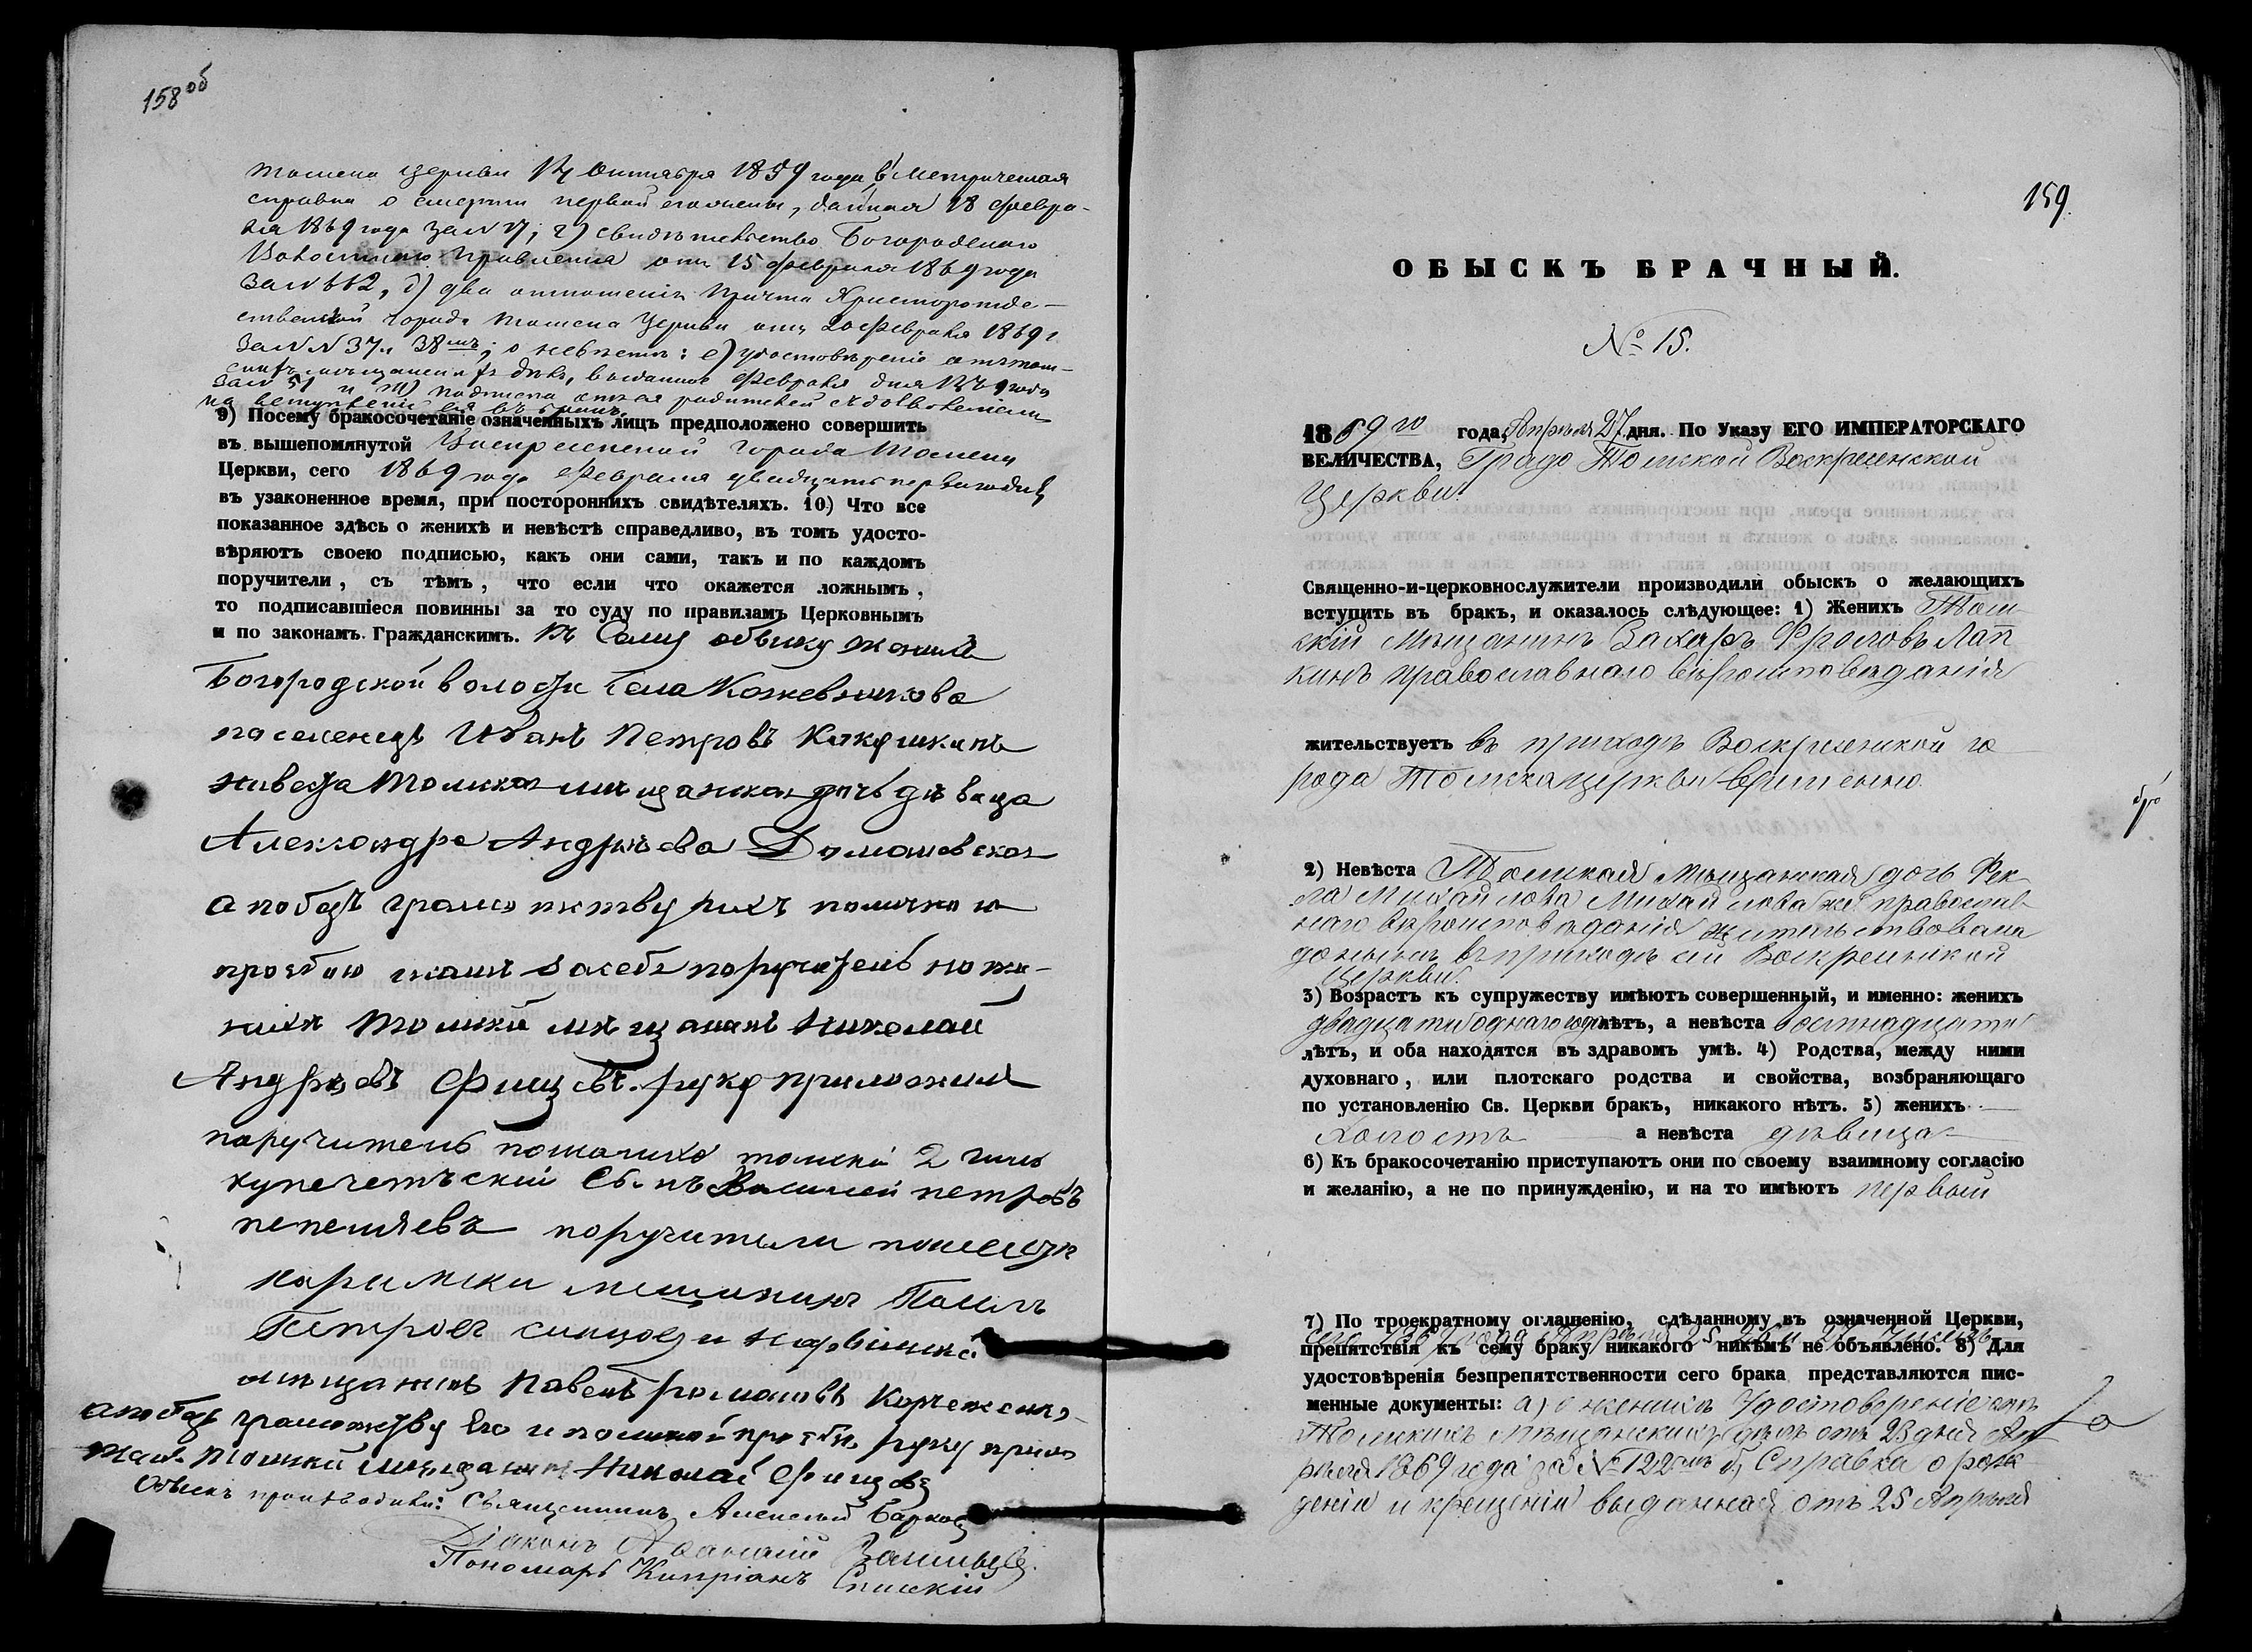 158 об
Томска церкви 14 Октября 1859 года в) Метрическая
справка о смерти первой его жены, данная 18 февра-
ля 1869 года за № 17; г) свидѣтельство Богородскаго
Волостнаго Правленія отъ 15 февраля 1869 года
за № 662, д) два отношенія Причта Христорожде-
ственской города Томска Церкви отъ 20 Февраля 1869 г.
за № № 37 и 38мъ; о невѣстѣ: е) удостовѣреніе
мѣщанскихъ дѣлъ, выданное Февраля дня
за № 51 и ж) подписка родителей съ дозволеніемъ
на вступленіе ея въ бракъ.
9) Посему бракосочетаніе означенныхъ лицъ предположено совершить
въ вышепомянутой Воскресенской города Томска
Церкви, сего 1869 года Февраля двадцать перваго дня
въ узаконенное время, при постороннихъ свидѣтеляхъ. 10) Что все
показанное здѣсь о женихѣ и невѣстѣ справедливо, въ томъ удосто-
вѣряютъ своею подписью, какъ они сами, такъ и по каждомъ
поручители, съ тѣмъ, что если что окажется ложнымъ,
то подписавшіеся повинны за то суду по правиламъ Церковнымъ
и по законамъ Гражданскимъ. Къ Сему обыску женихъ
Богородской волости села Кожевникова
поселенецъ Иванъ Петровъ
невеста Томская мѣщанская дочь дѣвица
Александра Андрѣева Домашевская
а по безъ грамотству ихъ и личною
прозбою ихъ и за себя поручитель по же-
нихѣ Томский мѣщанинъ Николай
Андрѣевъ Фищевъ руку приложилъ
поручитель по женихѣ томскй 2 гильд
купечетьский Сынъ Василей петровъ
пепеляевъ поручители по невести
нарымски мещинин Павелъ
Петровъ синцовъ и нарымский
мѣщанинъ Павелъ романовъ
а по безъ грамотству Его и по личной прозбѣ руку прило
жилъ Томский мѣщанинъ Николай Фищевъ
Обыскъ производили: Священникъ Алексѣй Барков
Діаконъ
Пономарь Кипріанъ
159.
ОБЫСКЪ БРАЧНЫЙ.
№ 15.
1869го года, Апрѣля 27 дня. По Указу ЕГО ИМПЕРАТОРСКАГО
ВЕЛИЧЕСТВА, Градо Томской Воскресенской
Церкви.
Священно-и-церковнослужители производили обыскъ о желающихъ
вступить въ бракъ, и оказалось слѣдующее: 1) Женихъ Том-
скій Мѣщанинъ Захаръ Фроловъ Лап
кинъ православнаго вѣроисповѣданія
жительствуетъ въ приходѣ Воскресенской го
рода Томска церкви временно.
2) Невѣста Томская Мѣщанская дочь Фек
ла Михайлова Михайлова же православ
наго вѣроисповѣданія жительствовала
донынѣ въ приходѣ сей Воскресенской
Церкви.
3) Возрастъ къ супружеству имѣютъ совершенный, и именно: женихъ
двадцати однаго года лѣтъ, а невѣста восемнадцати
лѣтъ, и оба находятся въ здравомъ умѣ. 4) Родства, между ними
духовнаго, или плотскаго родства и свойства, возбраняющаго
по установленію Св. Церкви бракъ, никакого нѣтъ. 5) женихъ
Холостъ а невѣста дѣвица
6) Къ бракосочетанію приступаютъ они по своему взаимному согласію
и желанію, а не по принужденію, и на то имѣютъ первый
7) По троекратному оглашенію, сдѣланному въ означенной Церкви,
сего 1869 года Апрѣля 25 26 и 27 чиселъ
препятствія къ сему браку никакого никѣмъ не объявлено. 8) Для
удостовѣренія безпрепятственности сего брака представляются пис-
менные документы: а) о женихѣ Удостовѣреніе отъ
Томскихъ Мѣщанскихъ дѣлъ отъ 23 дня Ап
рѣля 1869 года за № 122мъ б) Справка о рож
деніи и крещеніи выданная отъ 25 Апрѣля